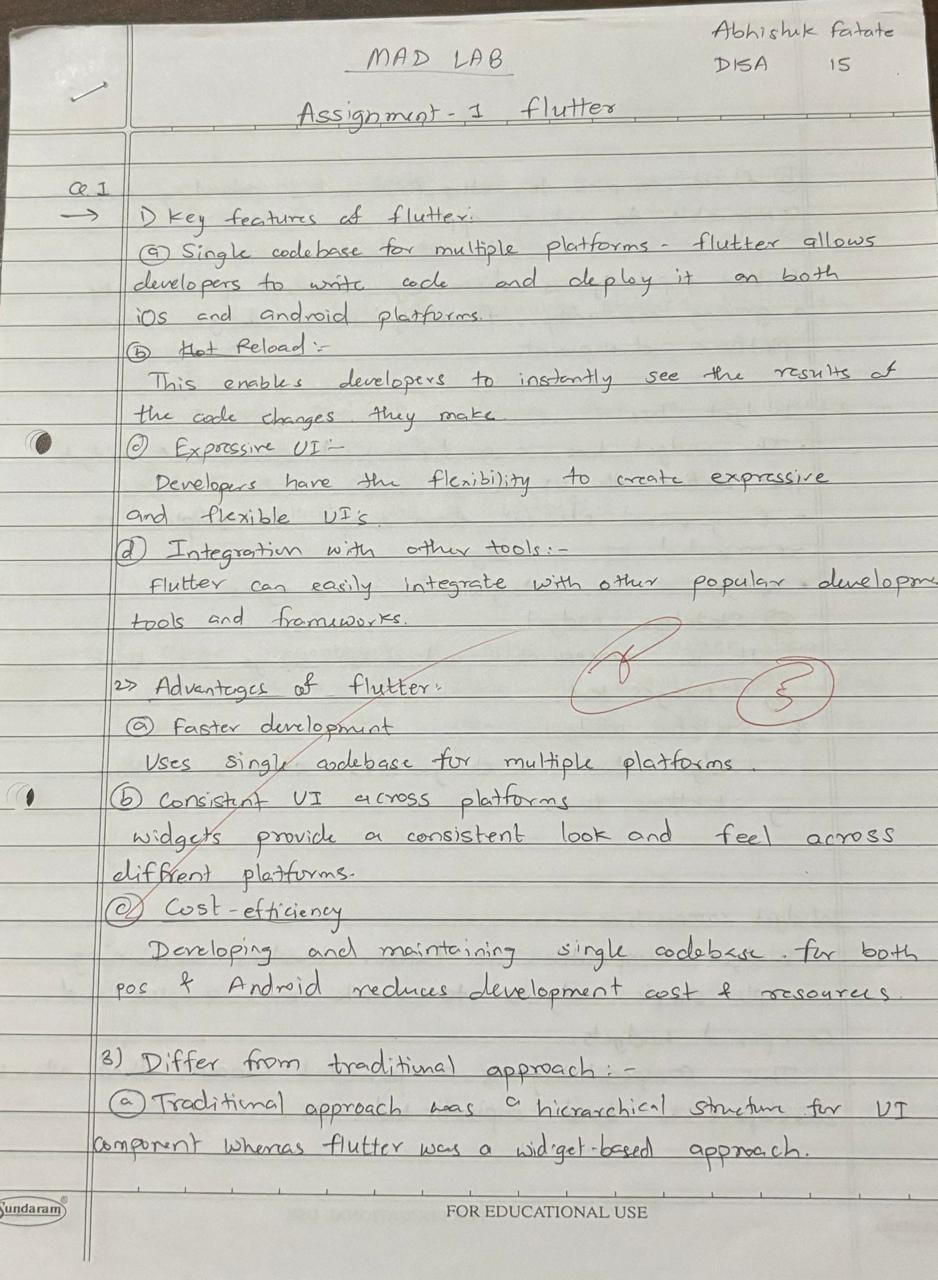 Abhishek Fatate
MAD LAB
D15A 15
Assignment - 1 flutter
Q.1
→ 1) Key features of flutter:
(a) Single codebase for multiple platforms - flutter allows
developers to write code and deploy it on both
iOs and android platforms.
(b) Hot Reload :-
This enables developers to instantly see the results of
the code changes they make.
(c) Expressive UI :-
Developers have the flexibility to create expressive
and flexible UI's.
(d) Integration with other tools :-
flutter can easily integrate with other popular developme
tools and frameworks.
2) Advantages of flutter:
(a) Faster development
Uses single codebase for multiple platforms.
(b) Consistent UI across platforms
widgets provide a consistent look and feel across
diffrent platforms.
(c) Cost-efficiency
Developing and maintaining single codebase for both
ios & Android reduces development cost & resources.
3) Differ from traditional approach :-
(a) Traditional approach was a hierarchical structure for UI
component whereas flutter was a widget-based approach.
Sundaram®
FOR EDUCATIONAL USE